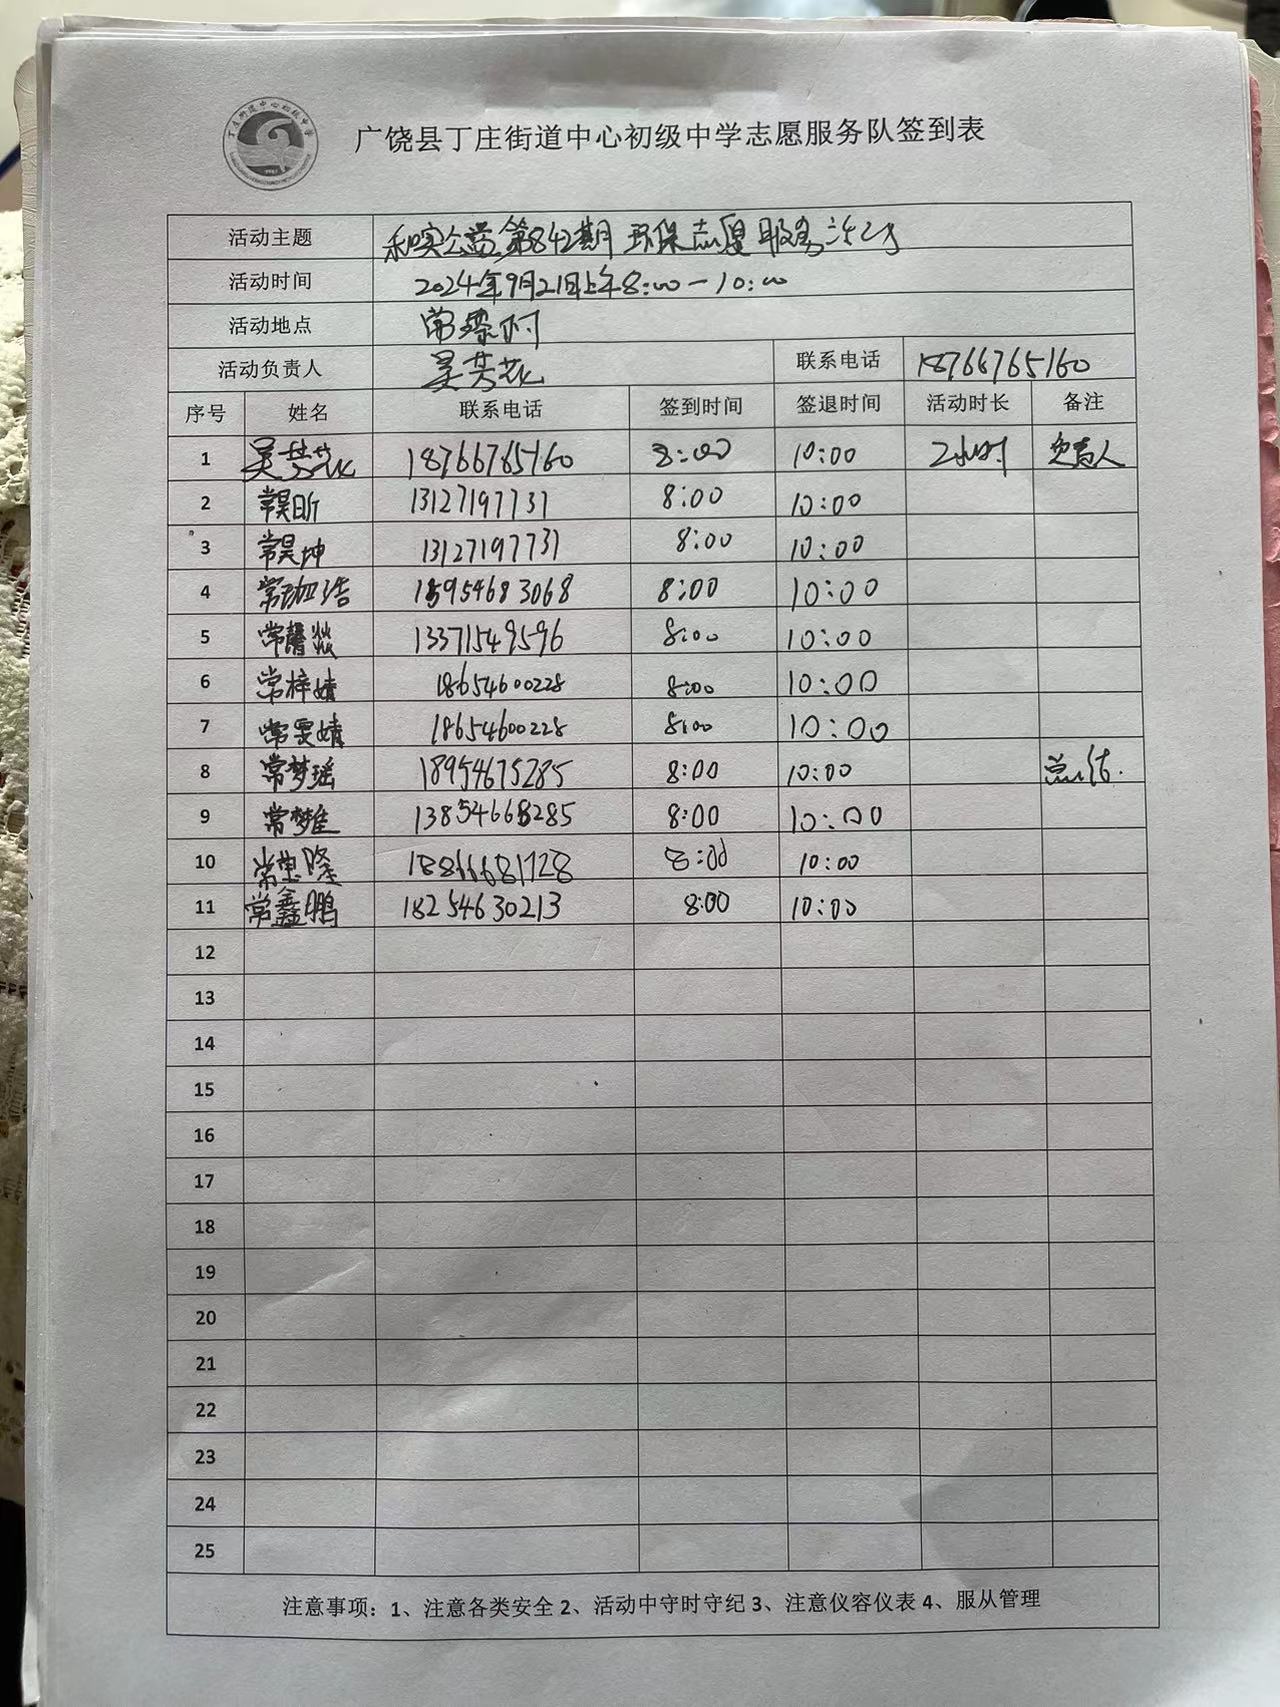 广饶县丁庄街道中心初级中学志愿服务队签到表
活动主题 和实公益第842期 环保志愿服务活动
活动时间 2024年9月21日上午8:00-10:00
活动地点 常
活动负责人 吴芸花 联系电话 18766765160
序号 姓名 联系电话 签到时间 签退时间 活动时长 备注
1 吴芸花 18766765160 8:00 10:00 2小时 负责人
2 常昊昕 13127197731 8:00 10:00
3 常昊坤 13127197731 8:00 10:00
4 常珈浩 15954683068 8:00 10:00
5 常馨 13371549596 8:00 10:00
6 常梓婧 18654600228 8:00 10:00
7 常雯婧 18654600228 8:00 10:00
8 常梦瑶 18954675285 8:00 10:00
9 常 13854668285 8:00 10:00 总结
10 常 18866681728 8:00 10:00
11 常鑫鹏 18254630213 8:00 10:00
12
13
14
15
16
17
18
19
20
21
22
23
24
25
注意事项：1、注意各类安全 2、活动中守时守纪 3、注意仪容仪表 4、服从管理